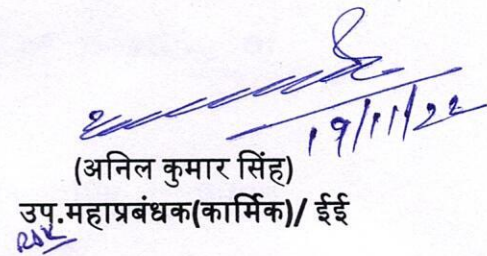 19/11/22
(अनिल कुमार सिंह)
उप.महाप्रबंधक(कार्मिक)/ ईई